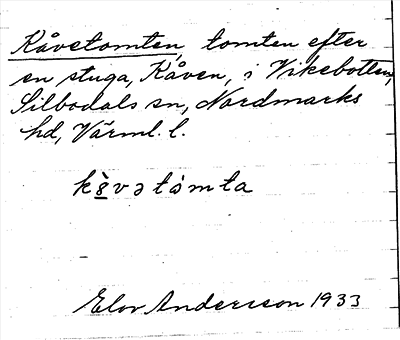 Kåvetomten, tomten efter
en stuga, Kåven, i Vikebotten,
Silbodals sn, Nordmarks
hd, Värml. l.
Elov Andersson 1933